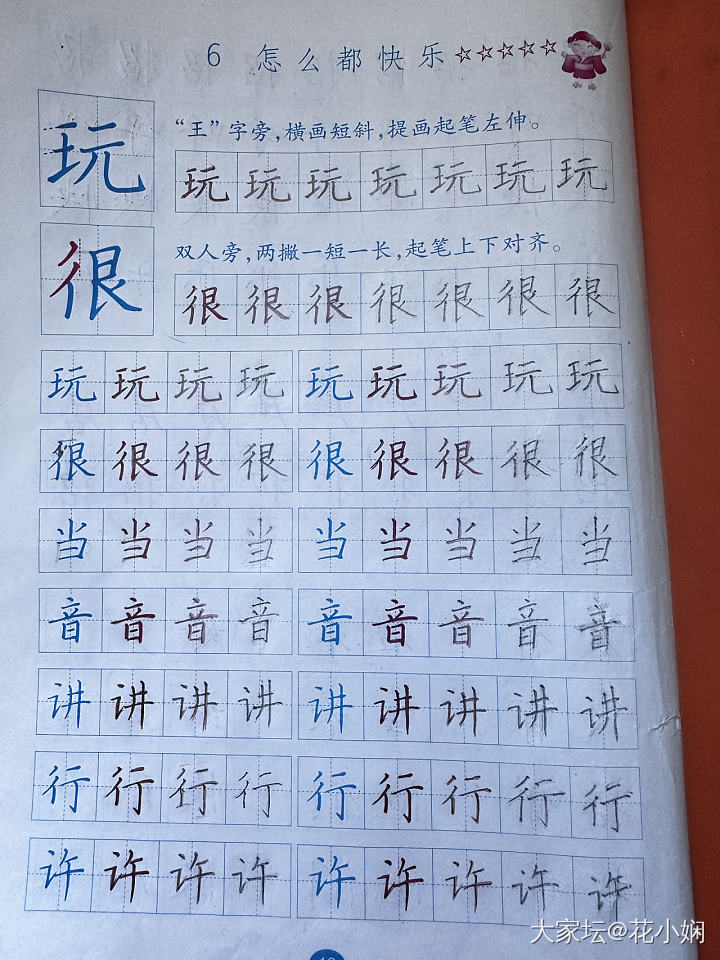 6 怎么都快乐
玩
“王”字旁,横画短斜,提画起笔左伸。
玩玩玩玩玩玩玩
很
双人旁,两撇一短一长,起笔上下对齐。
很很很很很很很
玩玩玩玩玩玩玩玩玩
很很很很很很很很很
当当当当当当当当当
音音音音音音音音音
讲讲讲讲讲讲讲讲讲
行行行行行行行行行
许许许许许许许许许
大家坛@花小娴